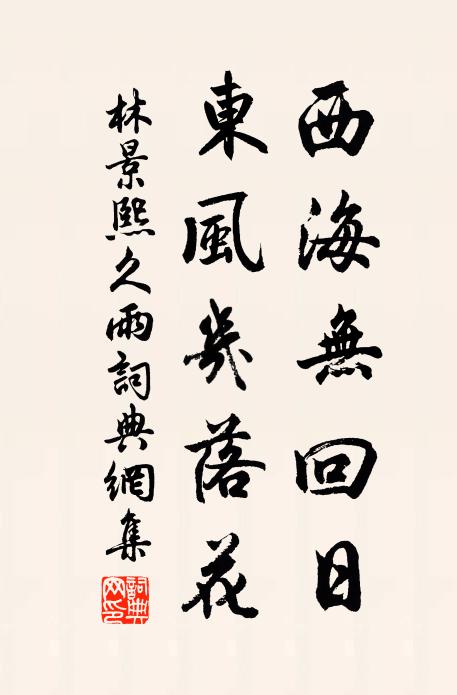 西海無回日
東風幾落花
林景熙久雨詞典網集
詞典網印